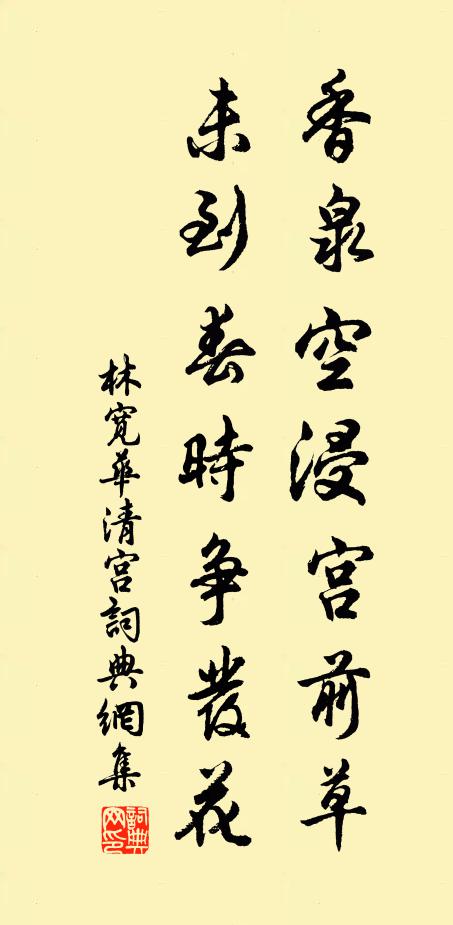 香泉空浸宫前草
未到春時争發花
林寬華清宫詞典網集
詞典網印